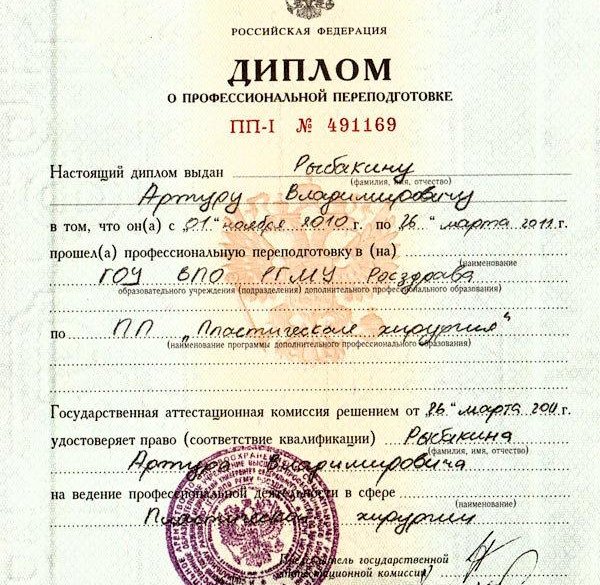 РОССИЙСКАЯ ФЕДЕРАЦИЯ
ДИПЛОМ
О ПРОФЕССИОНАЛЬНОЙ ПЕРЕПОДГОТОВКЕ
ПП-I № 491169
Настоящий диплом выдан Рыбакину
(фамилия, имя, отчество)
Артуру Владимировичу
в том, что он(а) с „01“ ноября 2010 г. по „26“ марта 2011 г.
прошел(а) профессиональную переподготовку в (на)
(наименование
ГОУ ВПО РГМУ Росздрава
образовательного учреждения (подразделения) дополнительного профессионального образования)
по ПП „Пластическая хирургия“
(наименование программы дополнительного профессионального образования)
Государственная аттестационная комиссия решением от „26“ марта 2011 г.
удостоверяет право (соответствие квалификации) Рыбакина
(фамилия, имя, отчество)
Артура Владимировича
на ведение профессиональной деятельности в сфере
(наименование)
Пластической хирургии
Председатель государственной
аттестационной комиссии